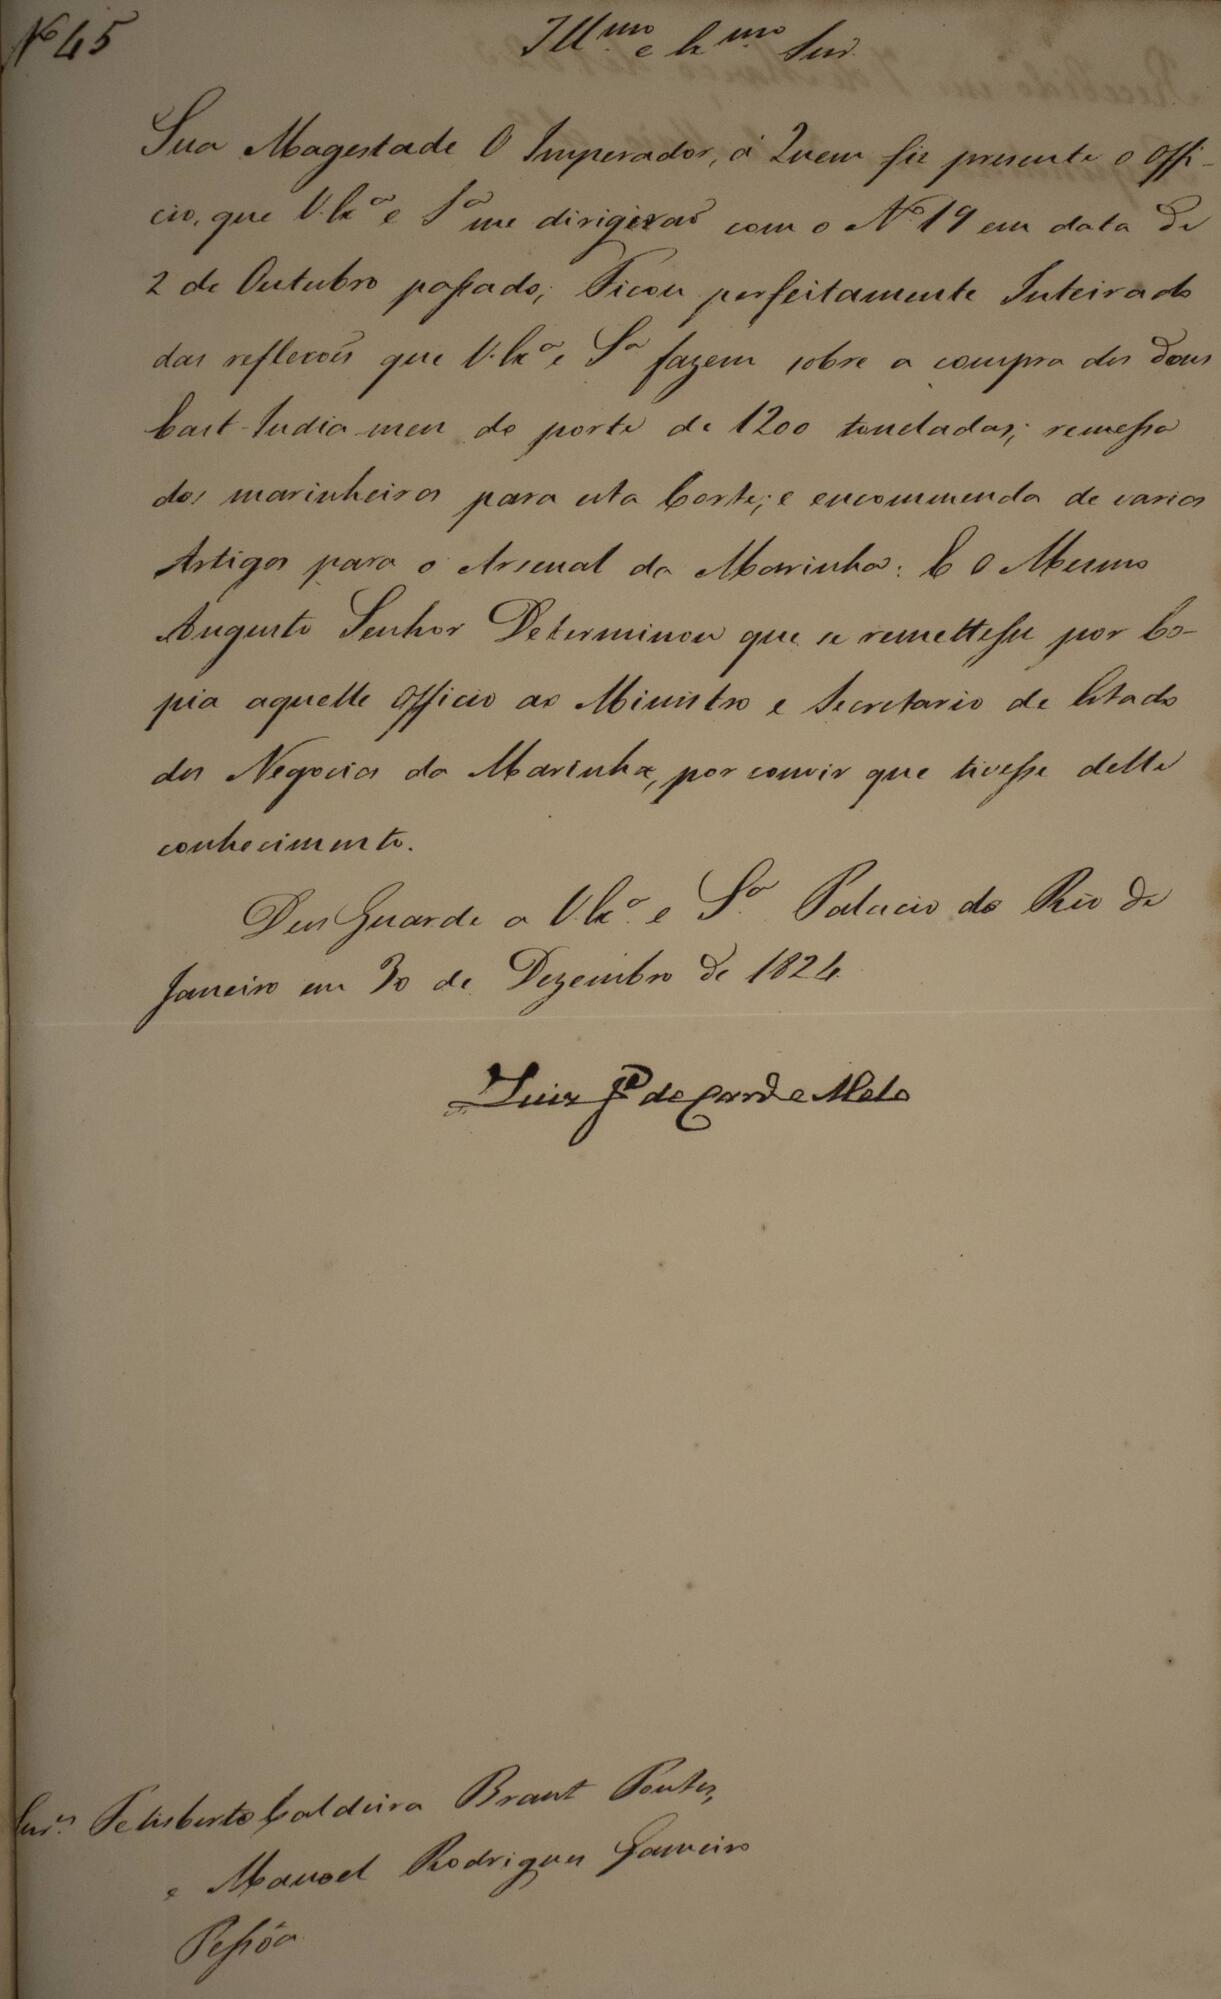 Nº 45
Illmo e Exmo Snr
Sua Magestade O Imperador, á Quem fiz presente o Offi-
cio, que V. Exa e Sa me dirigirão com o Nº 19 em data de
2 de Outubro passado; Ficou perfeitamente Inteirado
das reflexoẽs que V. Exa e Sa fazem sobre a compra dos dous
East-India-men do porte de 1200 toneladas; remessa
dos marinheiros para esta Corte; e encommenda de varios
Artigos para o Arsenal da Marinha: E O Mesmo
Augusto Senhor Determinou que se remettesse por Co-
pia aquelle Officio ao Ministro e Secretario de Estado
dos Negocios da Marinha, por convir que tivesse delle
conhecimento.
Deus Guarde a V. Exa e Sa Palacio do Rio de
Janeiro em 30 de Dezembro de 1824
Luiz Je de Carvo e Melo
Snres Felisberto Caldeira Brant Pontes,
e Manoel Rodrigues Gameiro
Pessôa